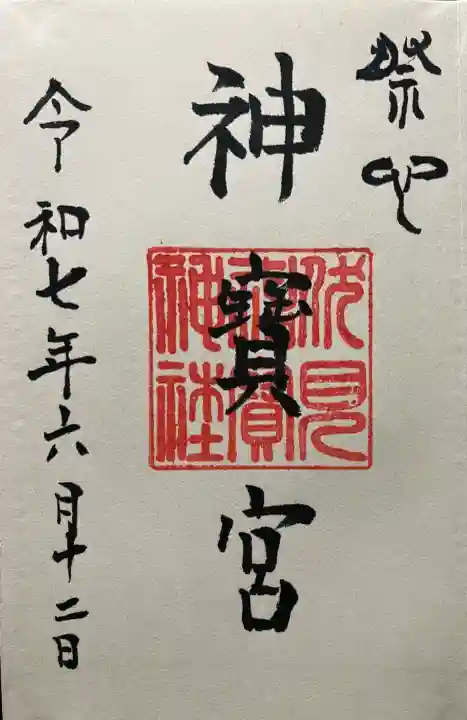 神寶宮
伏見
神寶
神社
令和七年六月十二日